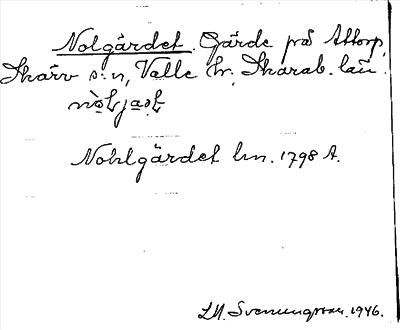 Nolgärdet. Gärde på Attorp,
Skärv s:n, Valle hr, Skarab. län.
Nohlgärdet lm. 1798 A.
Svenungsson. 1946.